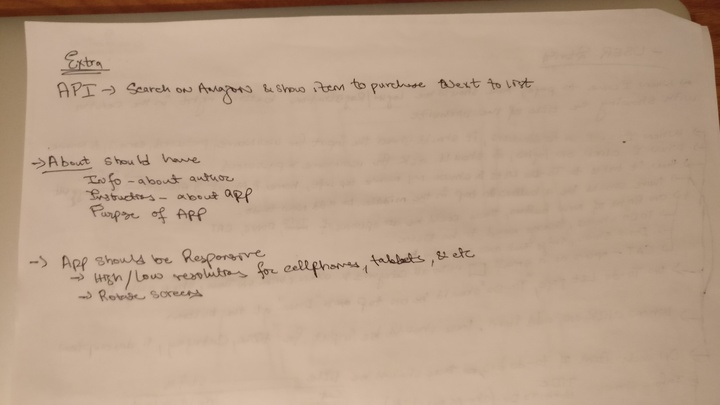 Extra
API → Search on Amazon & show item to purchase next to list
→ About should have
Info - about author
Instructions - about app
Purpose of App
→ App should be Responsive
→ High/Low resolutions for cellphones, tablets, & etc
→ Rotate screens